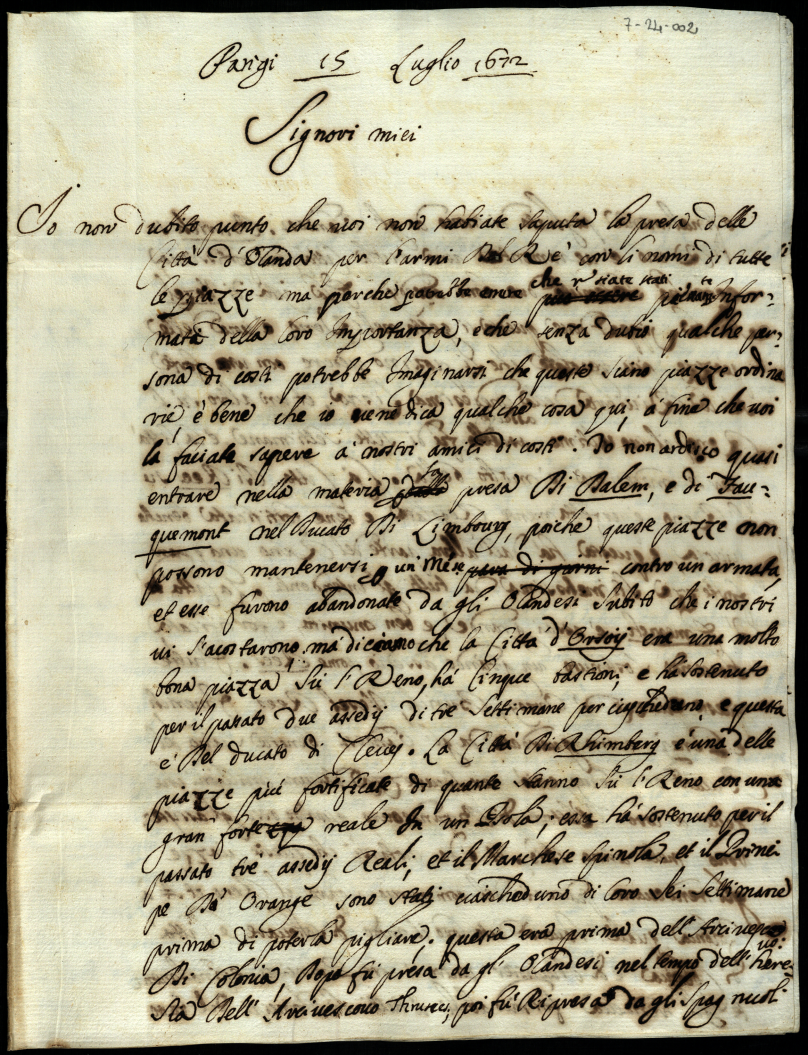 7-24-002
Parigi 15 Luglio 1672
Signori miei
Io non dubito punto che voi non habiate saputa la presa delle
Città d'Olanda per l'armi Del Rè con li nomi di tutte
le piazze ma perche potrebbe essere che n' siate stati più essere infor=
mati della loro Importanza, e che senza dubio qualche per=
sona di costi potrebbe Imaginarsi che queste siano piazze ordina
rie, è bene che io viene dica qualche cosa qui, à fine che voi
la faciate sapere à nostri amici di costi. Io non ardisco quasi
entrare nella materia presa Di Dalem, e di Fau=
quemont nel Ducato Di Limbourg, poiche queste piazze non
possono mantenersi un mese para di giorni contro un armata,
et esse furono abandonate da gli Olandesi subito che i nostri
vi s'acostarono, ma diciamo che la Città d'Orsoij era una molto
bona piazza su l'Reno, hà cinque bastioni, e hà sostenuto
per il passato due assedij di tre settimane per ciascheduno, e questa
e' Del ducato di Cleves. La Città Di Rhimberg è una delle
piazze piú fortificate di quante stanno su l'Reno con una
gran fortezza reale In un Isola; essa hà sostenuto per il
passato trè assedij Reali, et il Marchese Spinola, et il Princi
pe D'Orange sono stati ciascheduno di loro sei settimane
prima di poterla pigliare. questa era prima dell'Arcivesco
Di Colonia, Dopo fù presa da gl'Olandesi nel tempo dell'here=
sia Dell'Arcivescovo Thruses, poi fú Ripresa da gli Spagnuoli